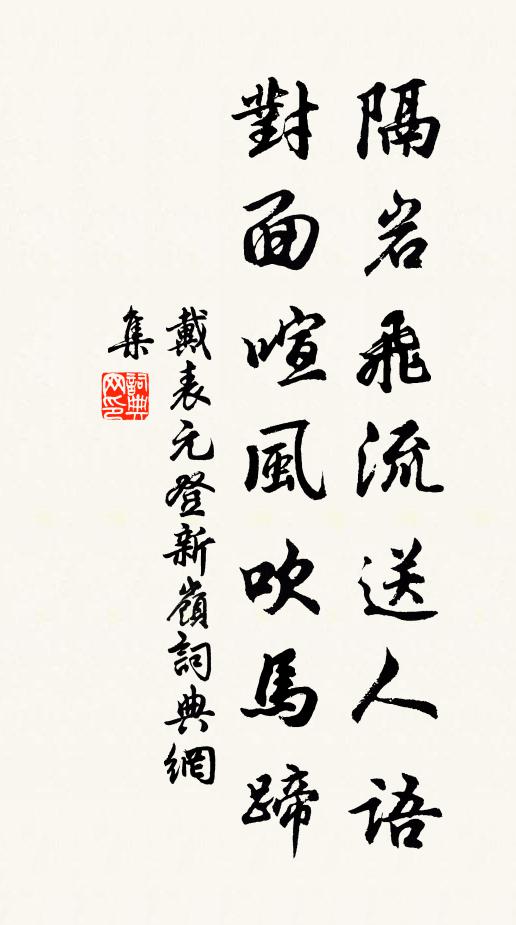 隔岩飛流送人語
對面喧風吹馬蹄
戴表元登新嶺詞典網
集
詞典
网印